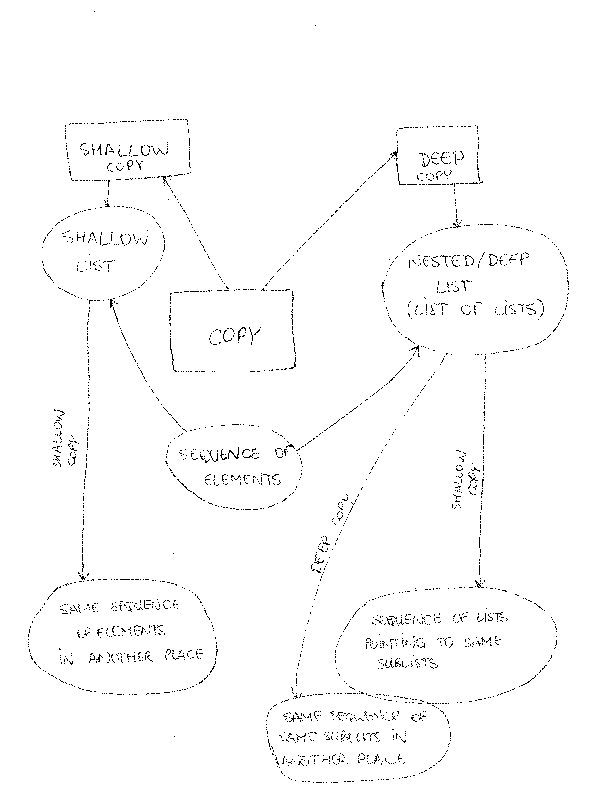 SHALLOW
COPY
DEEP
COPY
SHALLOW
LIST
NESTED/DEEP
LIST
(LIST OF LISTS)
COPY
SEQUENCE OF
ELEMENTS
SHALLOW
COPY
DEEP COPY
SHALLOW
COPY
SAME SEQUENCE
OF ELEMENTS
IN ANOTHER PLACE
SEQUENCE OF LISTS
POINTING TO SAME
SUBLISTS
SAME SEQUENCE OF
SAME SUBLISTS IN
ANOTHER PLACE